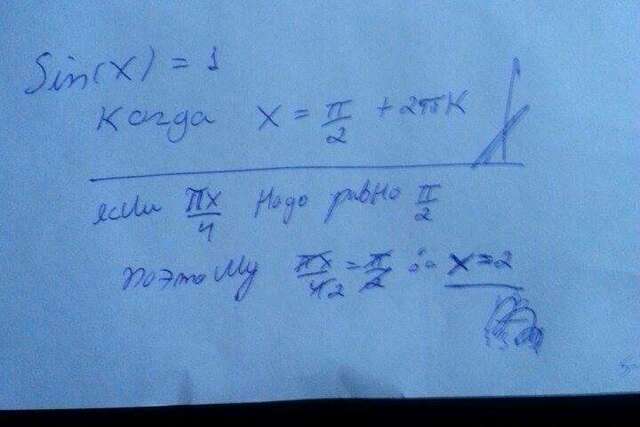 Sin(x) = 1
Когда x = π/2 + 2πk
если πx/4 надо равно π/2
поэтому πx/4 2 = π/2 ∴ x = 2